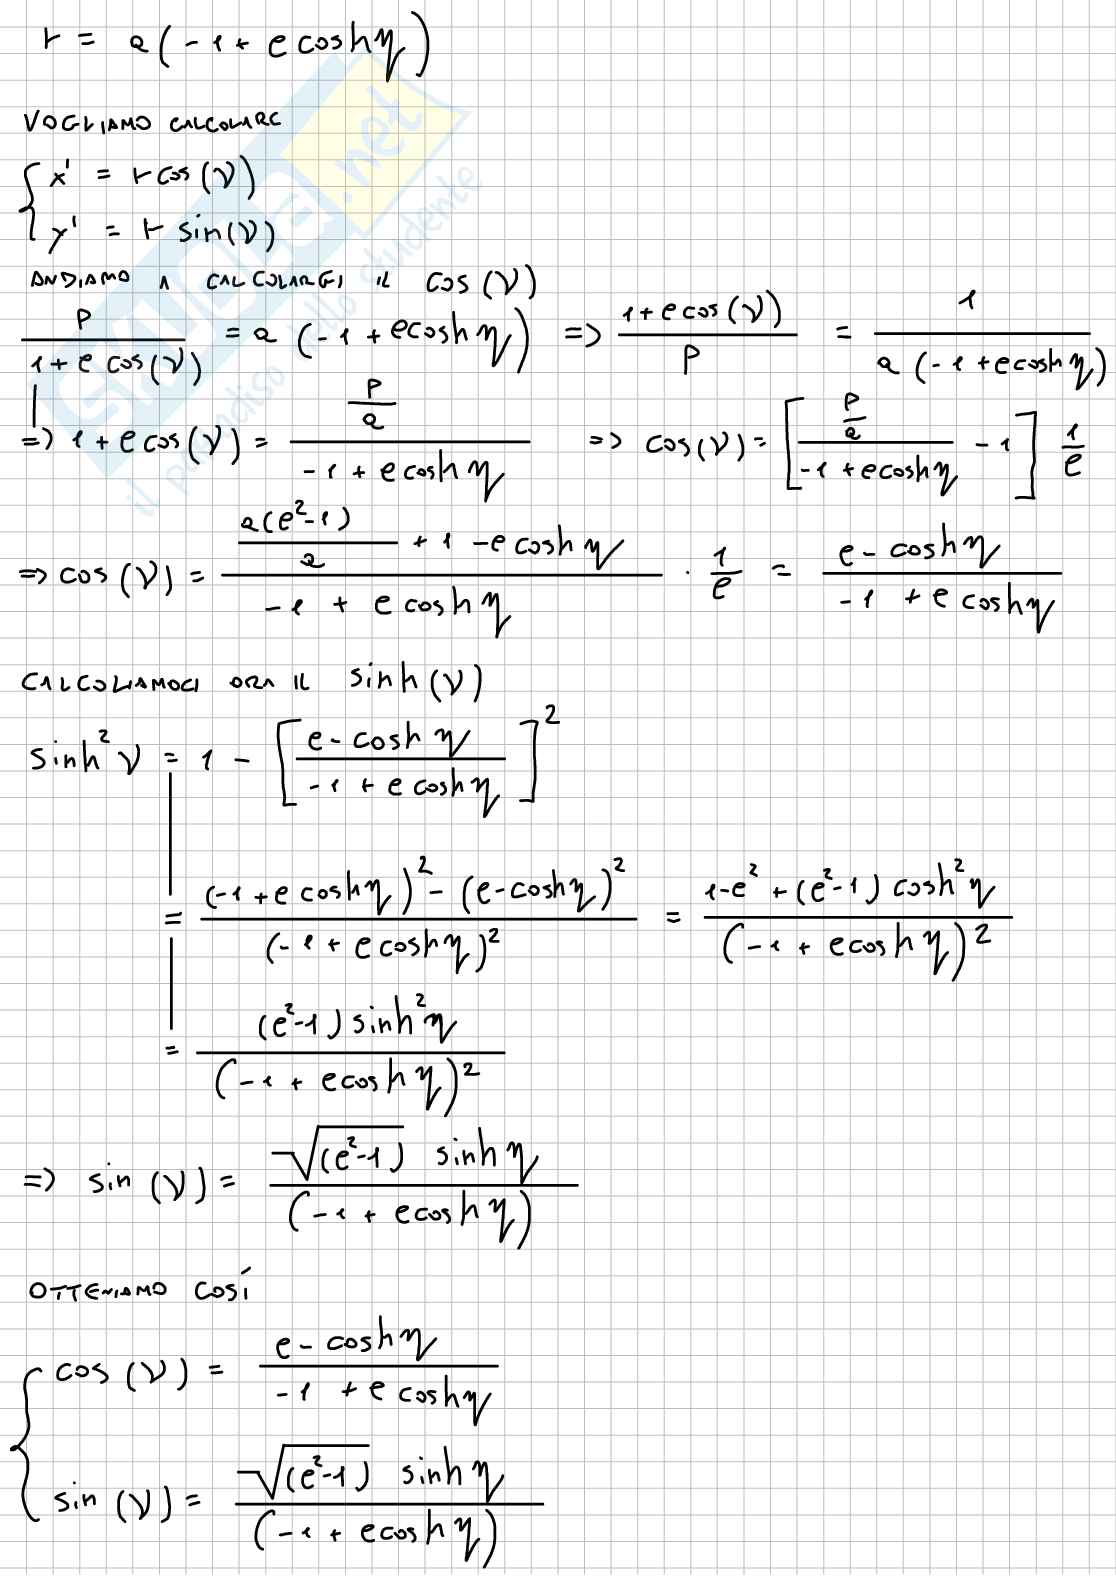 r = a(-1 + e cosh η)
VOGLIAMO CALCOLARE
{ x' = r cos(ν)
y' = r sin(ν)
ANDIAMO A CALCOLARCI IL cos(ν)
p / (1 + e cos(ν)) = a(-1 + e cosh η) => (1 + e cos(ν)) / p = 1 / (a(-1 + e cosh η))
=> 1 + e cos(ν) = (p/a) / (-1 + e cosh η) => cos(ν) = [ (p/a) / (-1 + e cosh η) - 1 ] 1/e
=> cos(ν) = (a(e²-1)/a + 1 - e cosh η) / (-1 + e cosh η) · 1/e = (e - cosh η) / (-1 + e cosh η)
CALCOLIAMOCI ORA IL sinh(ν)
sinh² ν = 1 - [ (e - cosh η) / (-1 + e cosh η) ]²
= ((-1 + e cosh η)² - (e - cosh η)²) / (-1 + e cosh η)² = (1 - e² + (e²-1) cosh² η) / (-1 + e cosh η)²
= (e²-1) sinh² η / (-1 + e cosh η)²
=> sin(ν) = √(e²-1) sinh η / (-1 + e cosh η)
OTTENIAMO COSÍ
{ cos(ν) = (e - cosh η) / (-1 + e cosh η)
sin(ν) = √(e²-1) sinh η / (-1 + e cosh η)
SKUOLA.net
il paradiso dello studente